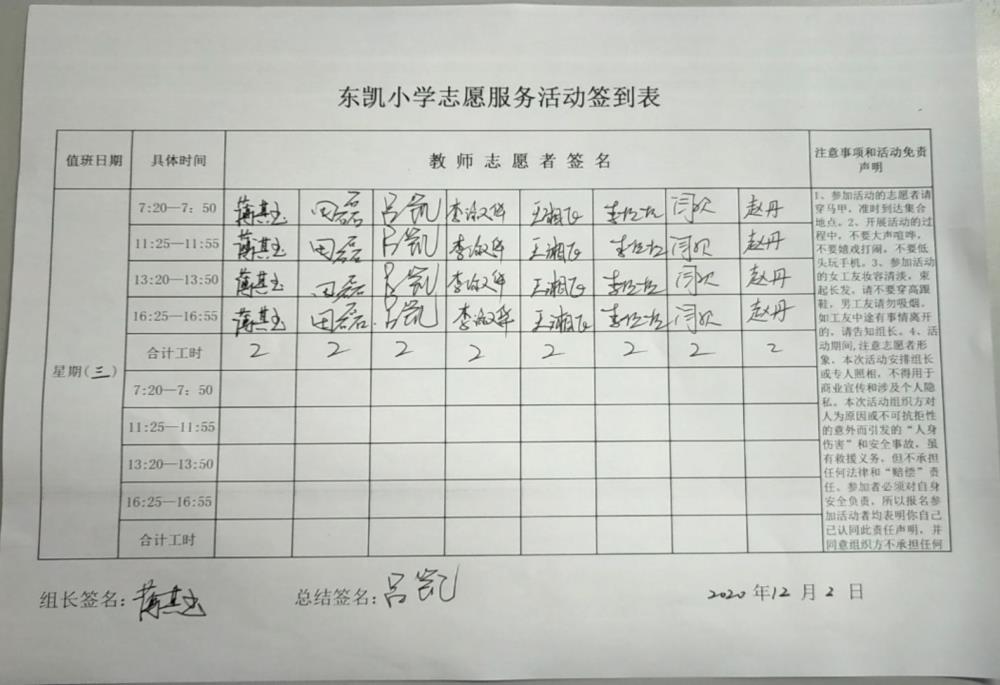 东凯小学志愿服务活动签到表
值班日期 具体时间 教师志愿者签名 注意事项和活动免责声明
星期(三)
7:20—7:50 田磊 吕凯 赵丹
11:25—11:55 田磊 吕凯 赵丹
13:20—13:50 田磊 吕凯 赵丹
16:25—16:55 田磊 吕凯 赵丹
合计工时 2 2 2 2 2 2 2 2
7:20—7:50
11:25—11:55
13:20—13:50
16:25—16:55
合计工时
1、参加活动的志愿者请
穿马甲,准时到达集合
地点。2、开展活动的过
程中,不要大声喧哗,
不要嬉戏打闹,不要低
头玩手机。3、参加活动
的女工友妆容清淡,束
起长发,请不要穿高跟
鞋,男工友请勿吸烟。
如工友中途有事情离开
的,请告知组长。4、活
动期间,注意志愿者形
象,本次活动安排组长
或专人照相,不得用于
商业宣传和涉及个人隐
私。本次活动组织方对
人为原因或不可抗拒性
的意外而引发的“人身
伤害”和安全事故,虽
有救援义务,但不承担
任何法律和“赔偿”责
任。参加者必须对自身
安全负责,所以报名参
加活动者均表明你自己
已认同此责任声明,并
同意组织方不承担任何
组长签名: 总结签名:吕凯 2020年12月2日